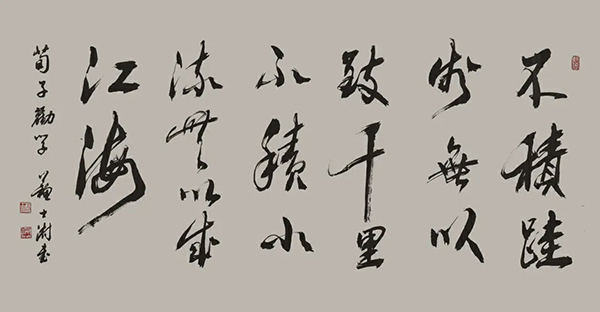 不積跬
步無以
致千里
不積小
流無以成
江海
荀子勸學 蘇士澍書